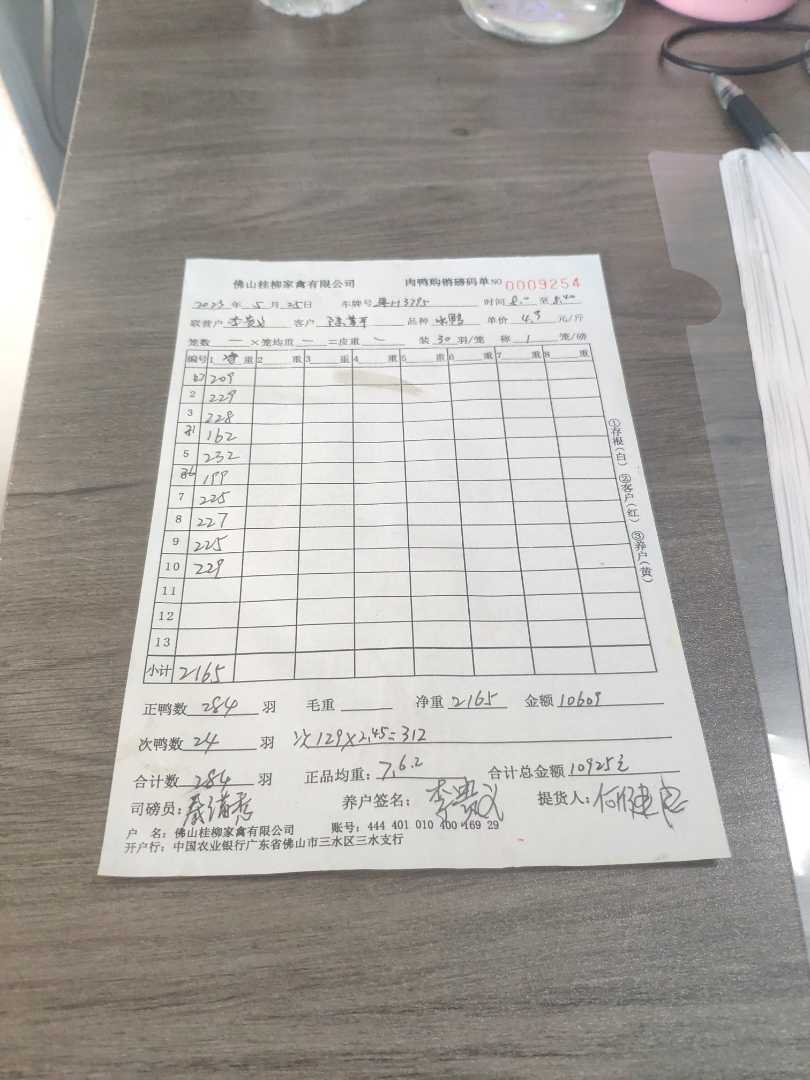 佛山桂柳家禽有限公司 肉鸭购销磅码单 NO 0009254
2023年5月25日 车牌号 时间8. 至8.40
联营户 李贵义 客户 品种 鸭 单价 4.9 元/斤
笼数 一 ×笼均重 一 =皮重 一 装 30 羽/笼 称 1 笼/磅
编号 1 重 2 重 3 重 4 重 5 重 6 重 7 重 8 重
209
2 229
3 228
162
5 232
199
7 225
8 227
9 225
10 229
11
12
13
小计 2165
①存根(白) ②客户(红) ③养户(黄)
正鸭数 284 羽 毛重 净重 2165 金额 10609
次鸭数 24 羽 次129×2.45=312
合计数 284 羽 正品均重: 7.6.2 合计总金额 10925元
司磅员: 养户签名: 李贵义 提货人:
户 名: 佛山桂柳家禽有限公司 账号: 444 401 010 400 169 29
开户行: 中国农业银行广东省佛山市三水区三水支行